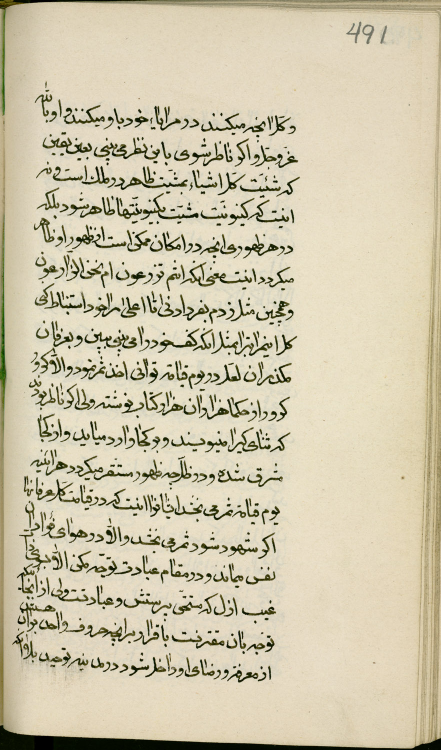 491
و کل آنچه میکنند در مرایاء خود باو میکنند و او بالله
عز و جل و اگر ناظر شوی باین نظر می بینی بعین یقین
که شیئیت کل اشیاء بمشیت ظاهر در ملک است و نه
اینست که کینونیت مشیت بکینونیتها ظاهر شود بلکه
در هر ظهوری آنچه در امکان ممکن است از ظهور او ظاهر
میگردد اینست معنی ءانتم تزرعون ام نحن الزارعون
و همچنین مثل زدم بفرد ادنی تا اعلی امر خود استنباط کنی
کل
مکذران لعل در یوم قیامة توانی اخذ ثمر نمود والا کرور
کرور از حکما هزاران هزار کتاب نوشته ولی اگر ناظر بودند
که ثنای که را مینویسند و بر که وارد میاید و از کجا
مشرق شده و در ظل چه ظهور مستقر میگردد هر آینه
یوم قیامة ثمر می بخشد
اگر مشهود شود ثمر می بخشد والا در هوای
نفس میماند و در مقام عبادت توجه مکن الا به
غیب ازل که مستحق پرستش و عبادتست ولی از آنجائیکه
توجه بآن مقترنست باقرار بر آنچه حروف واحد بر آن هستند
از معرفة و رضای او داخل شود در مدینه توحید